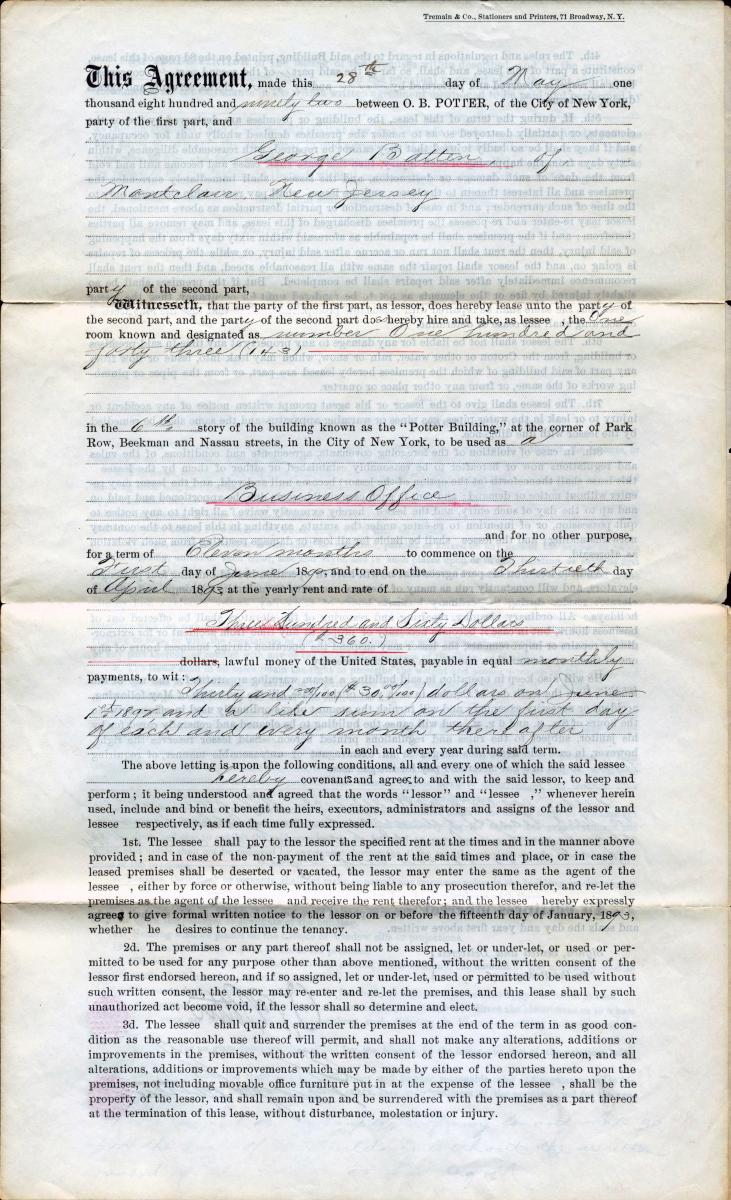 Tremain & Co., Stationers and Printers, 71 Broadway, N. Y.
This Agreement, made this 28th day of May one
thousand eight hundred and ninety two between O. B. POTTER, of the City of New York,
party of the first part, and
George Batten, of
Montclair, New Jersey
party of the second part,
Witnesseth, that the party of the first part, as lessor, does hereby lease unto the party of
the second part, and the party of the second part does hereby hire and take, as lessee , the One
room known and designated as number One hundred and
forty three (143)
in the 6th story of the building known as the "Potter Building," at the corner of Park
Row, Beekman and Nassau streets, in the City of New York, to be used as a
Business Office
and for no other purpose,
for a term of Eleven months to commence on the
First day of June 189 , and to end on the Thirtieth day
of April 1893 at the yearly rent and rate of
Three Hundred and Sixty Dollars
($360.)
dollars, lawful money of the United States, payable in equal monthly
payments, to wit:
Thirty and 00/100 ($30.00/100) dollars on June
1st 1892 and a like sum on the first day
of each and every month thereafter
in each and every year during said term.
The above letting is upon the following conditions, all and every one of which the said lessee
hereby covenants and agrees to and with the said lessor, to keep and
perform; it being understood and agreed that the words "lessor" and "lessee ," whenever herein
used, include and bind or benefit the heirs, executors, administrators and assigns of the lessor and
lessee respectively, as if each time fully expressed.
1st. The lessee shall pay to the lessor the specified rent at the times and in the manner above
provided; and in case of the non-payment of the rent at the said times and place, or in case the
leased premises shall be deserted or vacated, the lessor may enter the same as the agent of the
lessee , either by force or otherwise, without being liable to any prosecution therefor, and re-let the
premises as the agent of the lessee and receive the rent therefor; and the lessee hereby expressly
agrees to give formal written notice to the lessor on or before the fifteenth day of January, 1893,
whether he desires to continue the tenancy.
2d. The premises or any part thereof shall not be assigned, let or under-let, or used or per-
mitted to be used for any purpose other than above mentioned, without the written consent of the
lessor first endorsed hereon, and if so assigned, let or under-let, used or permitted to be used without
such written consent, the lessor may re-enter and re-let the premises, and this lease shall by such
unauthorized act become void, if the lessor shall so determine and elect.
3d. The lessee shall quit and surrender the premises at the end of the term in as good con-
dition as the reasonable use thereof will permit, and shall not make any alterations, additions or
improvements in the premises, without the written consent of the lessor endorsed hereon, and all
alterations, additions or improvements which may be made by either of the parties hereto upon the
premises, not including movable office furniture put in at the expense of the lessee , shall be the
property of the lessor, and shall remain upon and be surrendered with the premises as a part thereof
at the termination of this lease, without disturbance, molestation or injury.